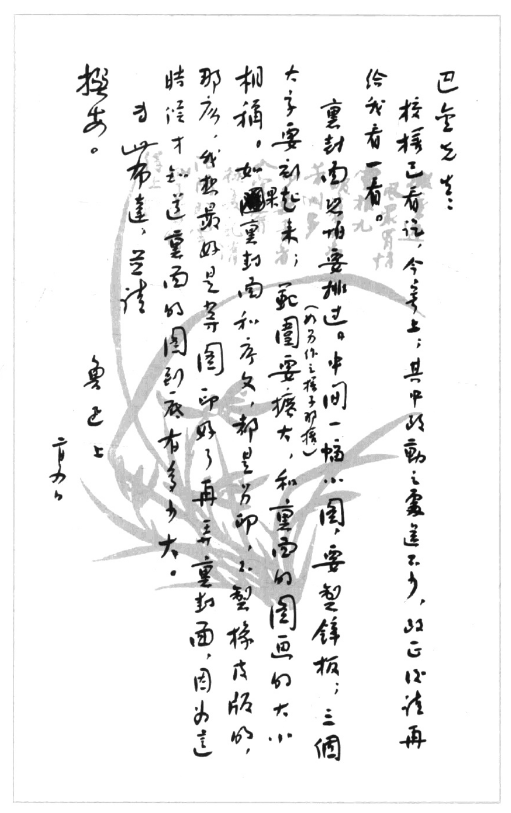 巴金先生：
校樣已看訖，今寄上；其中改動之處還不少，改正後請再
給我看一看。
裏封面恐怕要排過。中間一幅小圖，要製鋅板；三個
大字要刻起來；範圍要擴大，和裏面的圖畫的大小
（如另作之樣子那樣）
相稱。如果裏封面和序文，都是另印，不製橡皮版的，
那麽，我想最好是等圖印好了再弄裏封面，因爲這
時候才知道裏面的圖到底有多少大。
專此布達，並請
撰安。
魯迅上